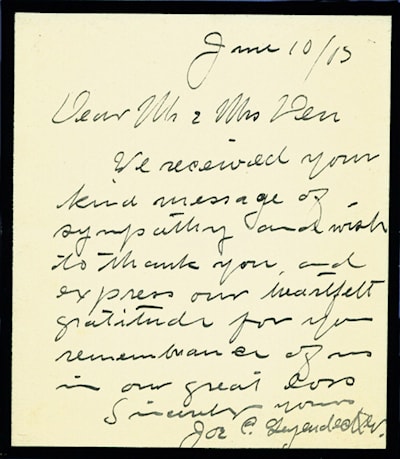 June 10/15
Dear Mr & Mrs Den
We received your
kind message of
sympathy and wish
to thank you, and
express our heartfelt
gratitude for you
remembrance of us
in our great loss
Sincerely yours
Joe C. Leyendecker.